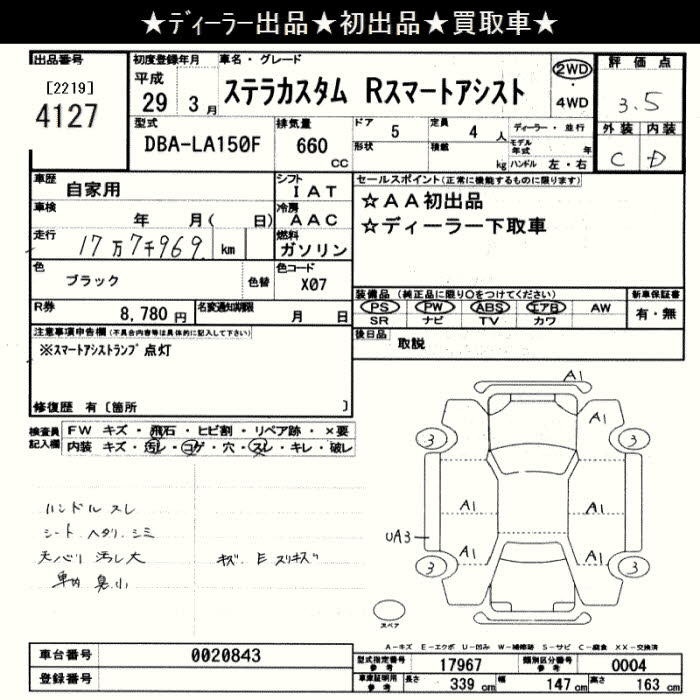 ★ディーラー出品★初出品★買取車★
出品番号
[2219]
4127
初度登録年月
平成
29 3月
車名・グレード
ステラカスタム Rスマートアシスト
2WD
・
4WD
評価点
3.5
外装 内装
C D
型式
DBA-LA150F
排気量
660
cc
ドア 5
形状
定員 4 人
積載 kg
ディーラー・並行
モデル年式 年
ハンドル 左・右
車歴
自家用
シフト
IAT
車検
年 月( 日)
冷房
AAC
走行
17万7千969 km
燃料
ガソリン
色
ブラック
色替
色コード
X07
R券
8,780円
名変通知期限
月 日
セールスポイント(正常に機能するものに限ります)
☆AA初出品
☆ディーラー下取車
装備品(純正品に限り○をつけてください)
PS PW ABS エアB AW
SR ナビ TV カワ
新車保証書
有・無
後日品
取説
注意事項申告欄(不具合内容等は具体的に記入して下さい)
※スマートアシストランプ点灯
修復歴 有〔箇所 〕
検査員記入欄
FW キズ・飛石・ヒビ割・リペア跡・×要
内装 キズ・汚レ・コゲ・穴・スレ・キレ・破レ
ハンドル スレ
シート ヘタリ シミ
天バリ 汚レ大
車内 臭 小
キズ E スリキズ
A1
A1
3
3
A1
A1
UA3
A1
A1
3
3
スペア
A-キズ E-エクボ U-凹み W-補修跡 S-サビ C-腐食 XX-交換済
車台番号
0020843
登録番号
型式指定番号
参考
17967
類別区分番号
参考
0004
車庫証明用
参考
長さ 339 cm
幅 147 cm
高さ 163 cm